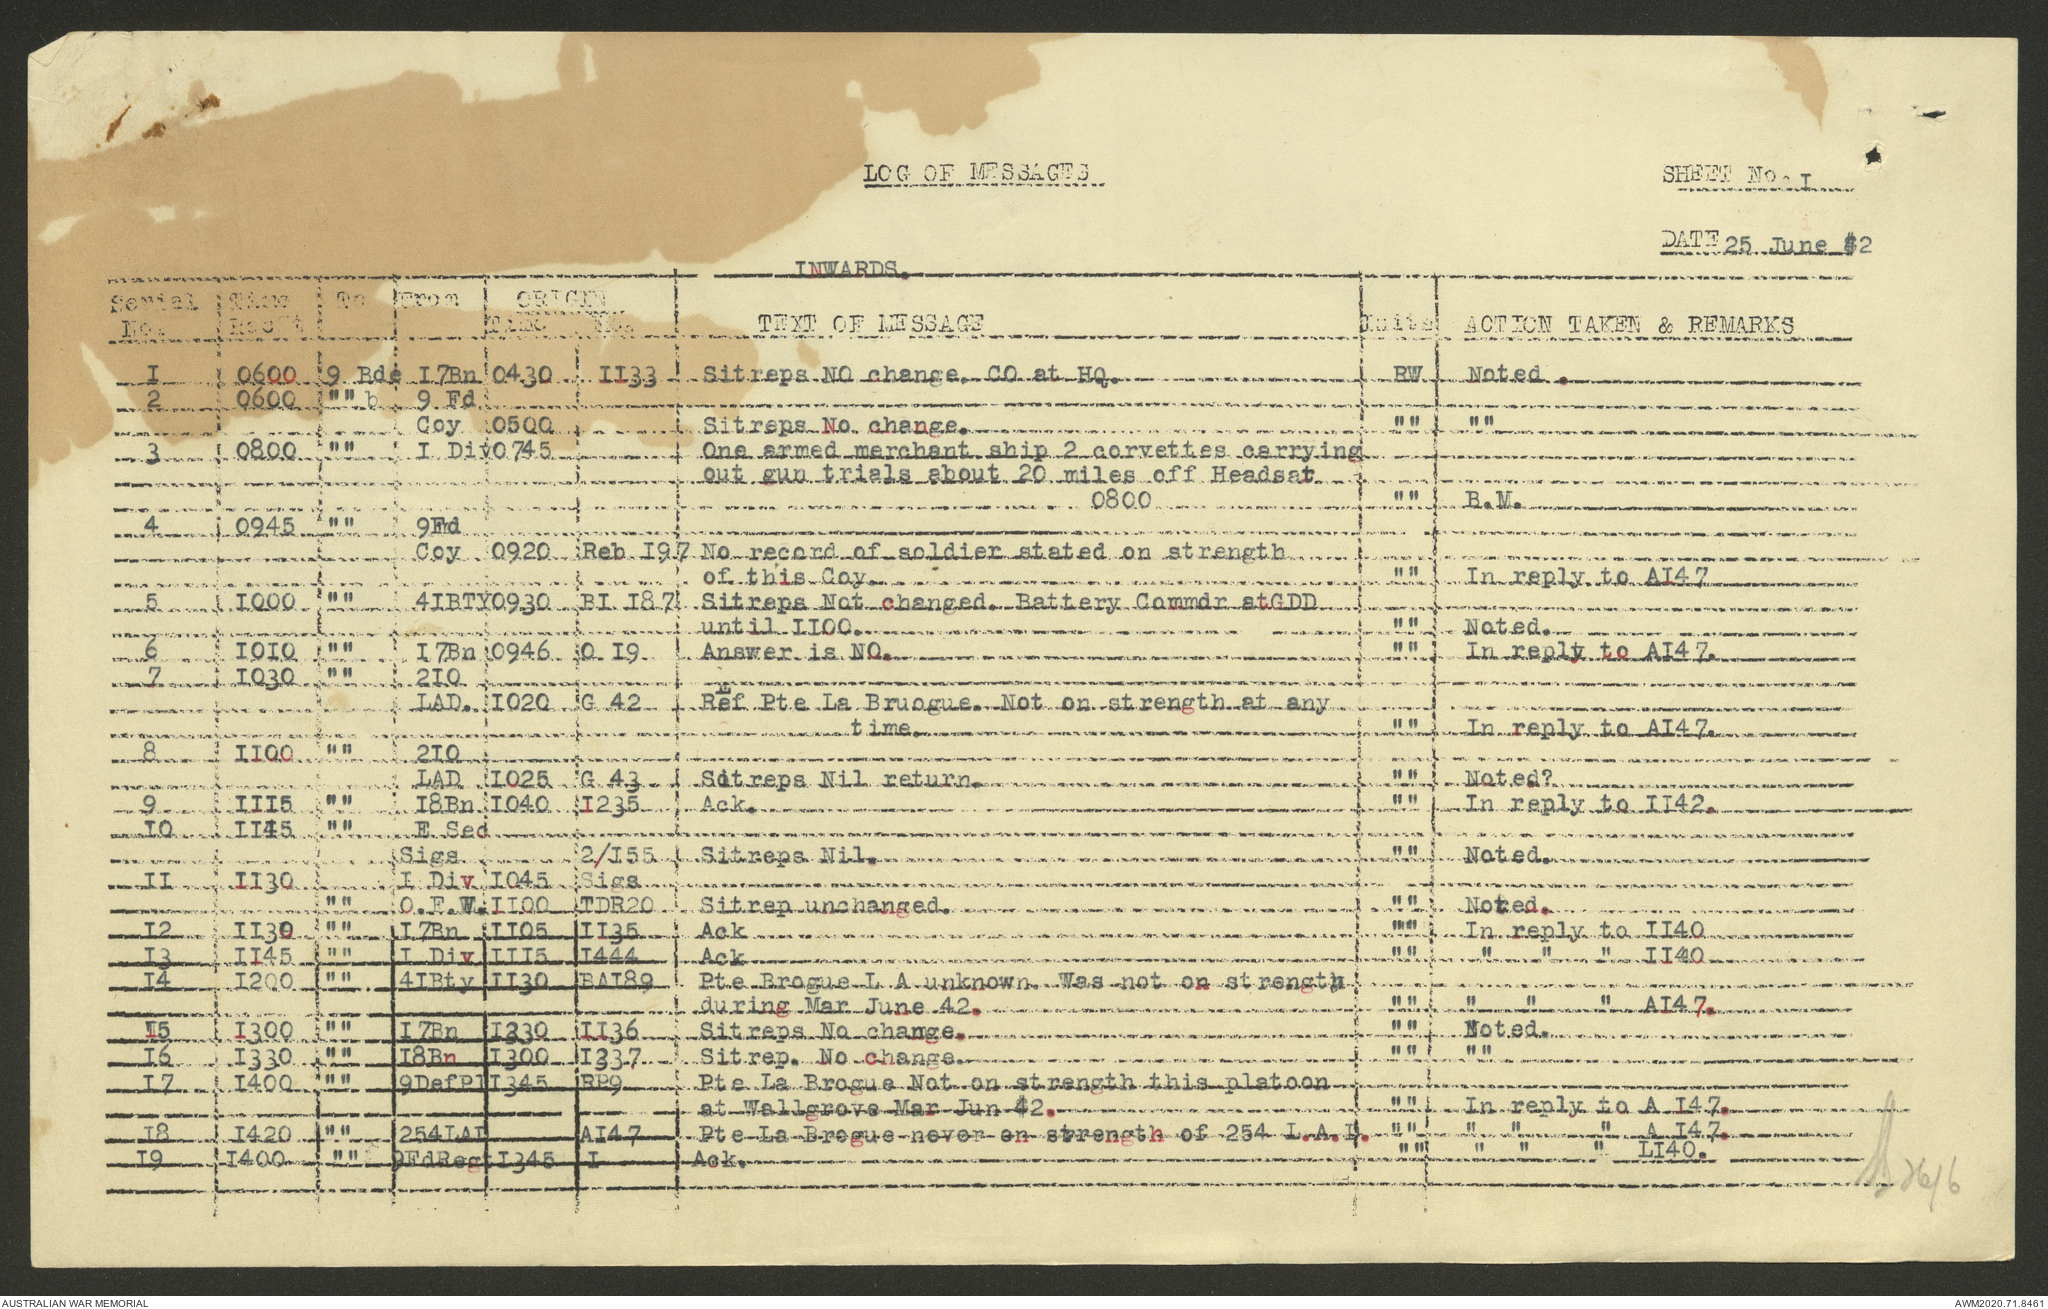 LOG OF MESSAGES
SHEET No. I
DATE 25 June 42
INWARDS.
Serial Time To From ORIGIN
No. Rec't Time No. TEXT OF MESSAGE Inits ACTION TAKEN & REMARKS
I 0600 9 Bde I7Bn 0430 II33 Sitreps NO change. CO at HQ. RW Noted .
2 0600 "" b 9 Fd
Coy 0500 Sitreps No change. "" ""
3 0800 "" I Div 0745 One armed merchant ship 2 corvettes carrying
out gun trials about 20 miles off Headsat
0800 "" B.M.
4 0945 "" 9Fd
Coy 0920 Reb I97 No record of soldier stated on strength
of this Coy. "" In reply to AI47
5 I000 "" 4IBTY 0930 BI I87 Sitreps Not changed. Battery Commdr atGDD
until II00. "" Noted.
6 I0I0 "" I7Bn 0946 O I9 Answer is NO. "" In reply to AI47.
7 I030 "" 2I0
LAD. I020 G 42 Ref Pte La Bruogue. Not on strength at any
time. "" In reply to AI47.
8 II00 "" 2I0
LAD I025 G 43 Sitreps Nil return. "" Noted?
9 III5 "" I8Bn I040 I235 Ack. "" In reply to II42.
I0 II45 "" E Sec
Sigs 2/I55 Sitreps Nil. "" Noted.
II II30 I Div I045 Sigs
"" O.F.W. II00 TDR20 Sitrep unchanged. "" Noted.
I2 II30 "" I7Bn II05 II35 Ack "" In reply to II40
I3 II45 "" I Div III5 I444 Ack "" " " " II40
I4 I200 "" 4IBty II30 BAI89 Pte Brogue L A unknown. Was not on strength
during Mar June 42. "" " " " AI47.
I5 I300 "" I7Bn I230 II36 Sitreps No change. "" Noted.
I6 I330 "" I8Bn I300 I237 Sitrep. No change. "" ""
I7 I400 "" 9DefPl I345 RP9 Pte La Brogue Not on strength this platoon
at Wallgrove Mar Jun 42. "" In reply to A I47.
I8 I420 "" 254LAD AI47 Pte La Brogue never on strength of 254 L.A.D. "" " " " A I47.
I9 I400 "" 9FdRegt I345 I Ack. "" " " " LI40.
26/6
AUSTRALIAN WAR MEMORIAL
AWM2020.71.8461